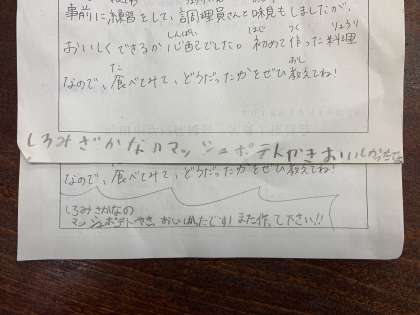 事前に練習をして、調理員さんと味見もしましたが、
おいしくできるか心配でした。初めて作った料理
なので、食べてみて、どうだったかをぜひ教えてね!
しろみざかなのマッシュポテトやきおいしかったです
なので、食べてみて、どうだったかをぜひ教えてね!
しろみざかなの
マッシュポテトやき、おいしかったです!また作って下さい!!